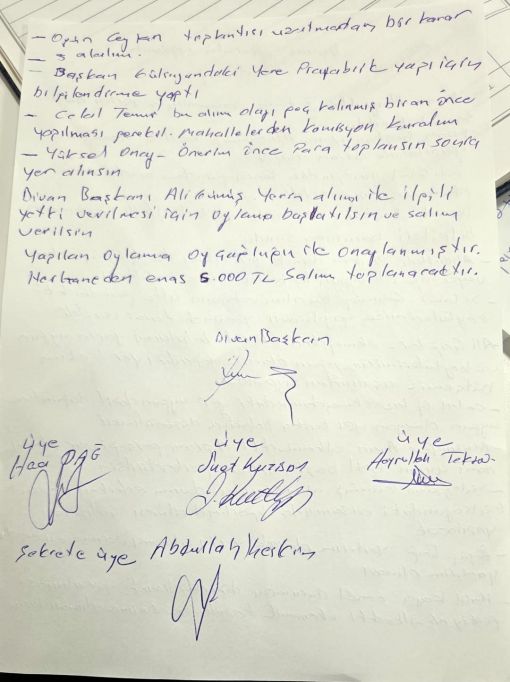 - Ogün Ceylan toplantısı uzatmadan bir karar
- s alalım.
- Başkan Gülsuyundaki Yere Prefabrik yapı için
bilgilendirme yaptı
- Celal Temur bu alım olayı geç kalınmış biran önce
yapılması gerekir. Mahallelerden komisyon kuralım
- Yüksel Onay - Önerim önce Para toplansın sonra
yer alınsın
Divan Başkanı Ali Gümüş Yerin alımı ile ilgili
yetki verilmesi için oylama başlatılsın ve salım
verilsin
Yapılan Oylama Oy çoğluğun ile onaylanmıştır.
Her haneden enas 5.000 TL Salım toplanacaktır.
Divan Başkanı
üye üye üye
DAĞ Suat Hayrullah
sekrete üye Abdullah Keskin